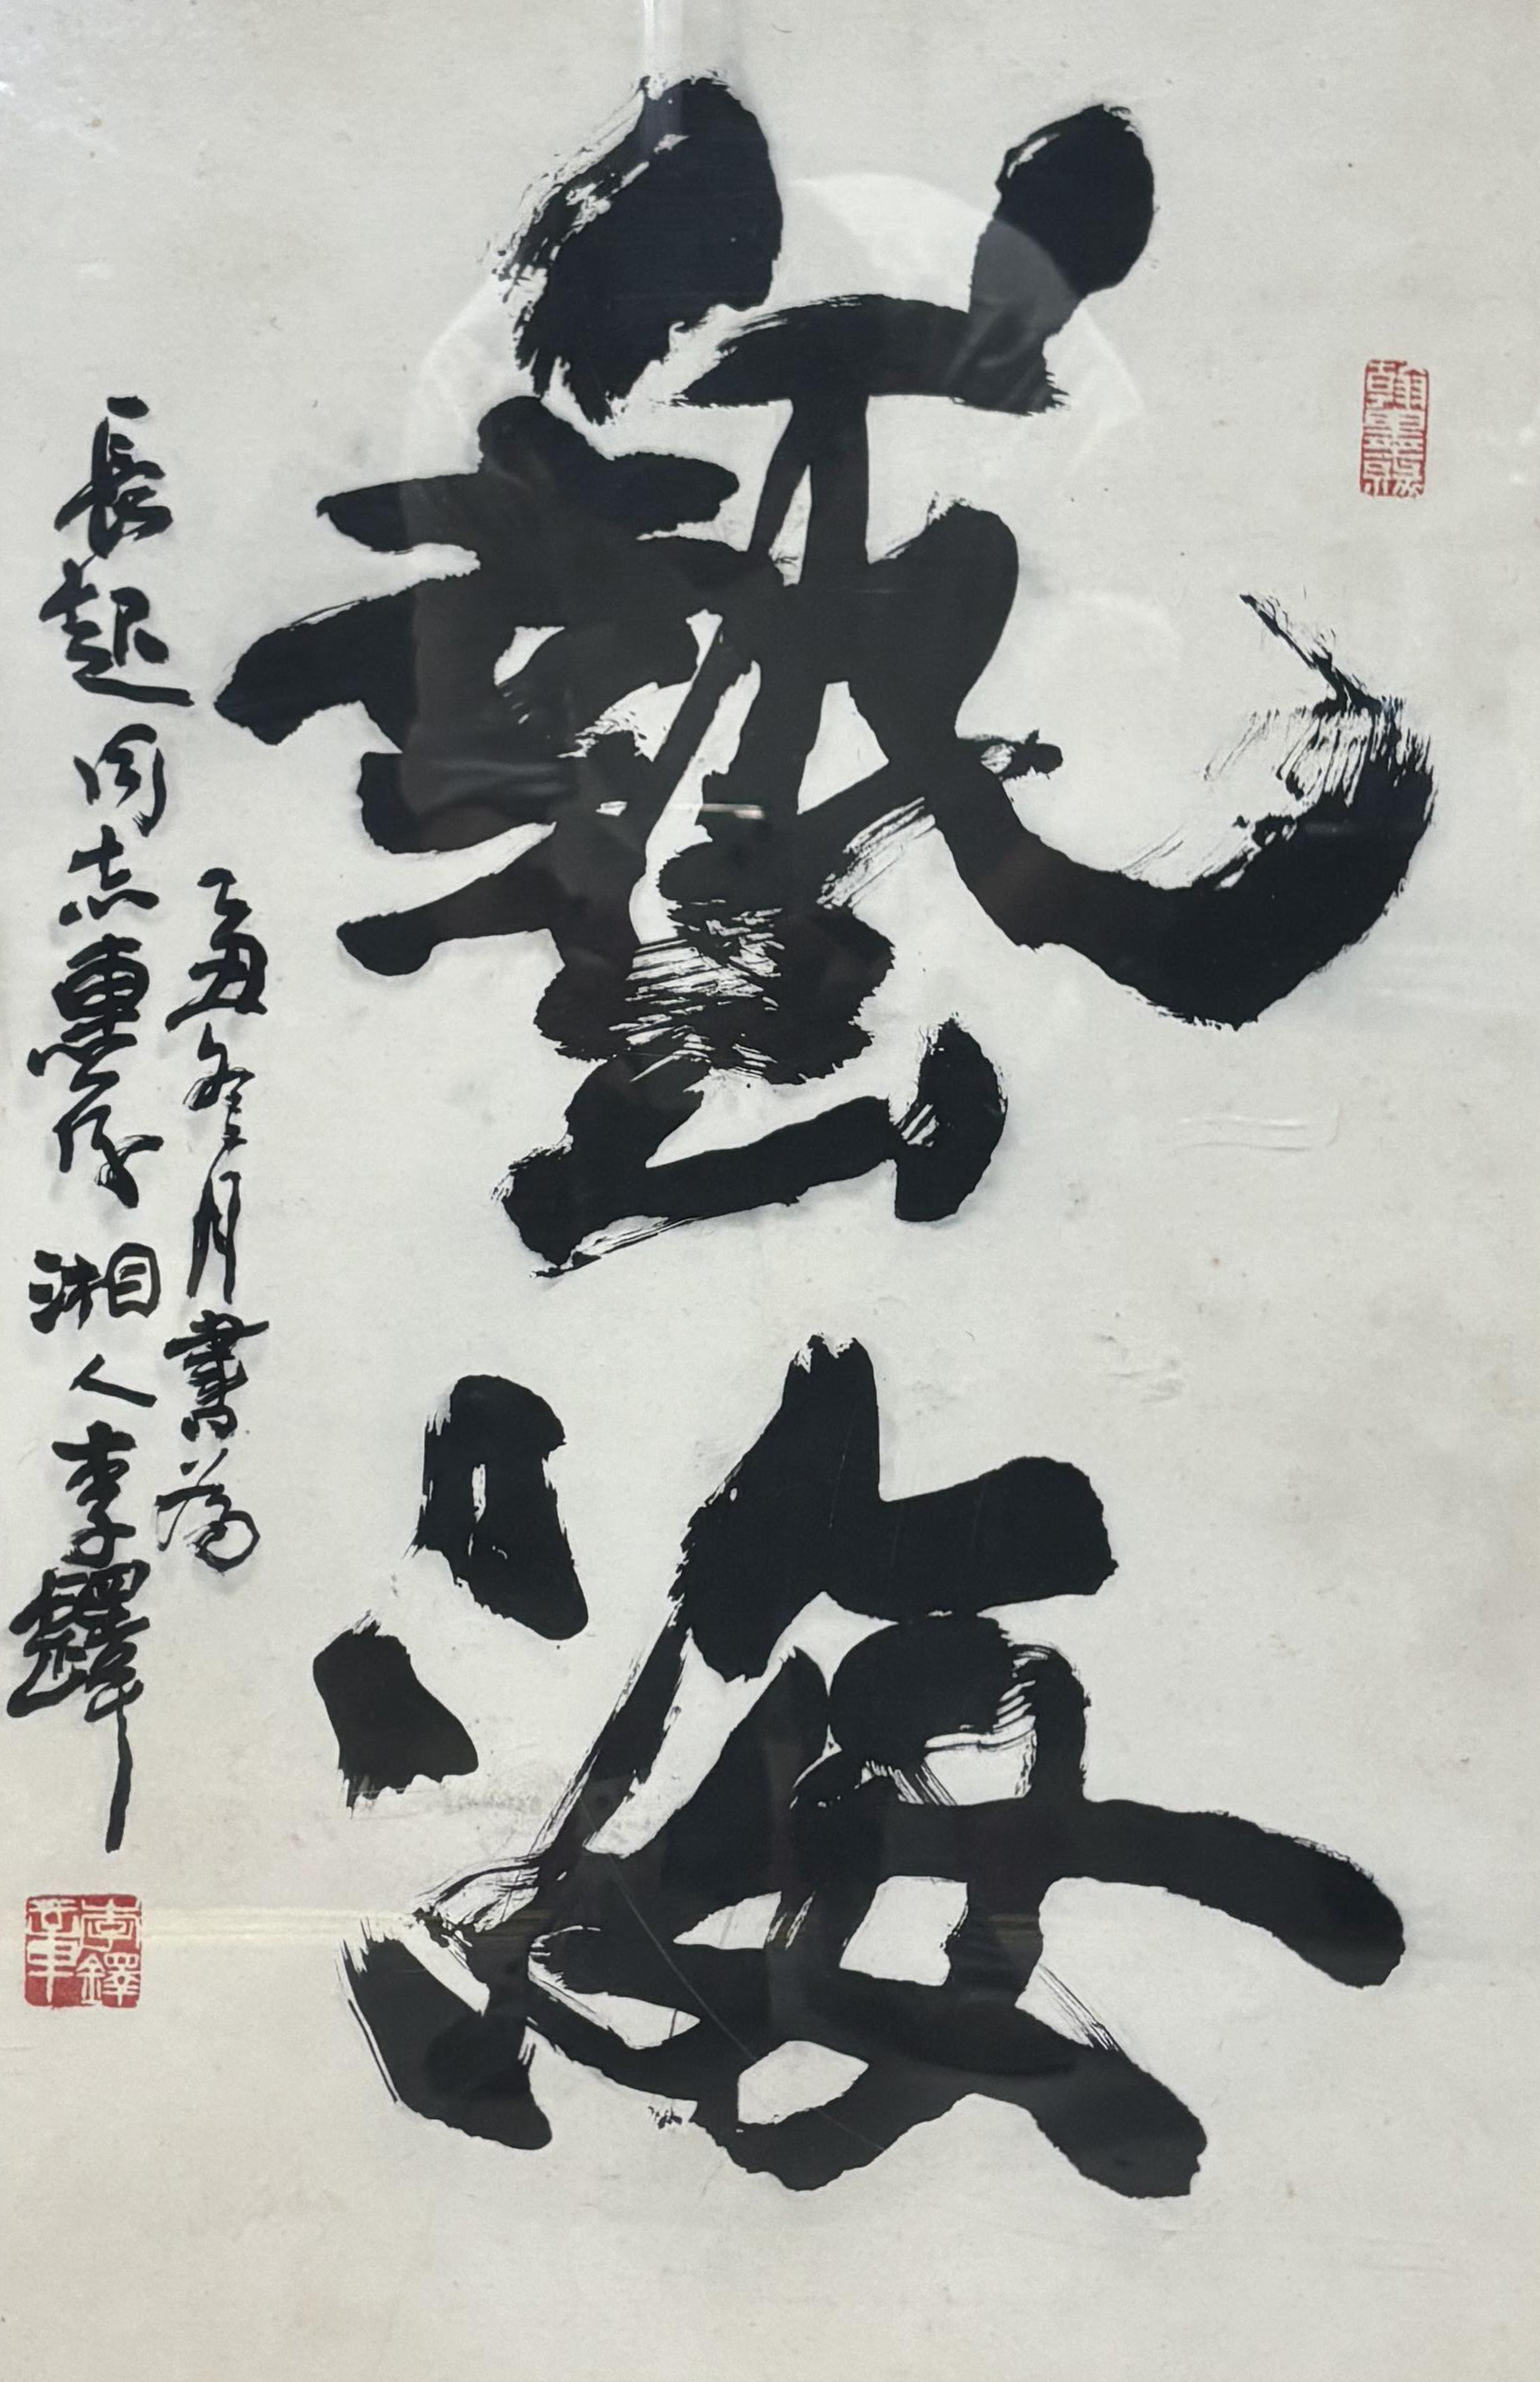 藝海
乙丑冬月書為
長起同志惠存 湘人李鐸
翰墨緣
李鐸